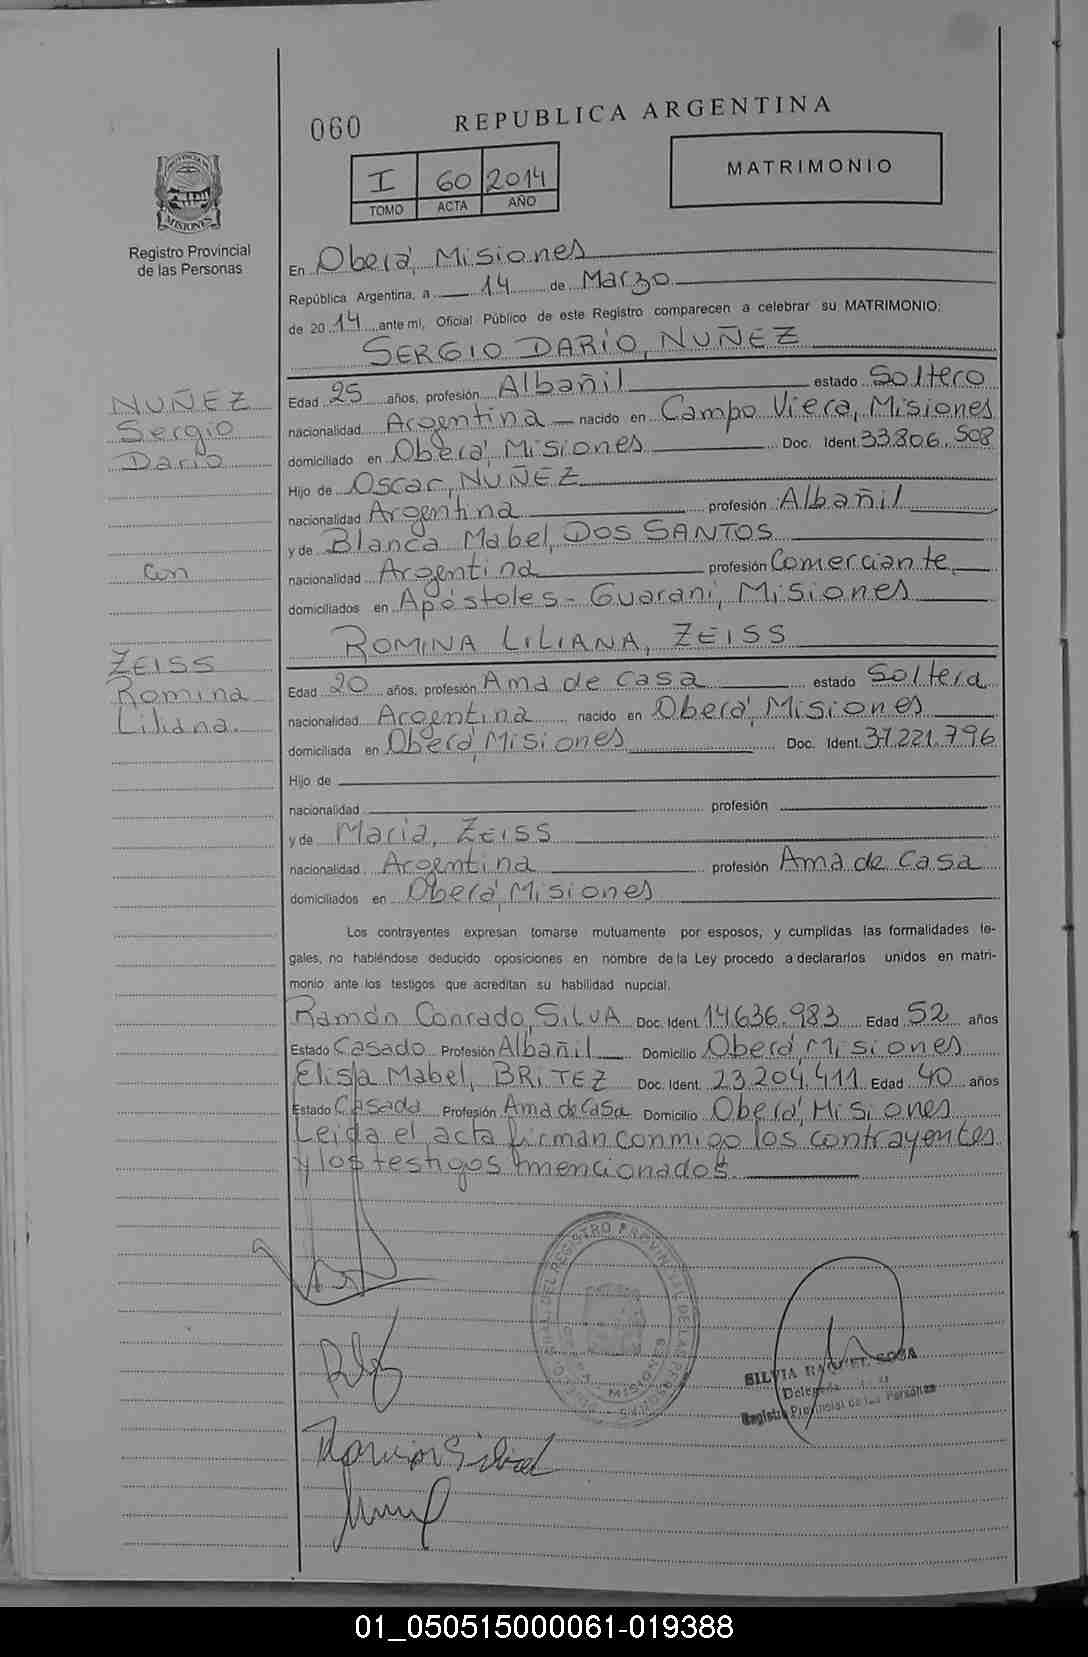 060
REPUBLICA ARGENTINA
MATRIMONIO
I 60 2014
TOMO ACTA AÑO
PROVINCIA DE
MISIONES
Registro Provincial
de las Personas
En Oberá, Misiones
República Argentina, a 14 de Marzo
de 2014 ante mí, Oficial Público de este Registro comparecen a celebrar su MATRIMONIO:
SERGIO DARÍO, NUÑEZ
NUÑEZ
Sergio
Darío
con
ZEISS
Romina
Liliana.
Edad 25 años, profesión Albañil estado Soltero
nacionalidad Argentina nacido en Campo Viera, Misiones
domiciliado en Oberá, Misiones Doc. Ident. 33.806.508
Hijo de Oscar, NUÑEZ
nacionalidad Argentina profesión Albañil
y de Blanca Mabel, DOS SANTOS
nacionalidad Argentina profesión Comerciante
domiciliados en Apóstoles - Guaraní, Misiones
ROMINA LILIANA, ZEISS
Edad 20 años, profesión Ama de casa estado Soltera
nacionalidad Argentina nacido en Oberá, Misiones
domiciliada en Oberá, Misiones Doc. Ident. 37.221.796
Hijo de
nacionalidad profesión
y de María, ZEISS
nacionalidad Argentina profesión Ama de casa
domiciliados en Oberá, Misiones
Los contrayentes expresan tomarse mutuamente por esposos, y cumplidas las formalidades le-
gales, no habiéndose deducido oposiciones en nombre de la Ley procedo a declararlos unidos en matri-
monio ante los testigos que acreditan su habilidad nupcial.
Ramón Conrado, SILVA Doc. Ident. 14.636.983 Edad 52 años
Estado Casado Profesión Albañil Domicilio Oberá, Misiones
Elisa Mabel, BRITEZ Doc. Ident. 23.204.411 Edad 40 años
Estado Casada Profesión Ama de Casa Domicilio Oberá, Misiones
Leída el acta firman conmigo los contrayentes
y los testigos mencionados
DEL REGISTRO PROVINCIAL DE LAS PERSONAS
MISIONES
SILVIA RAQUEL SOSA
Delegada
Registro Provincial de las Personas
01_050515000061-019388